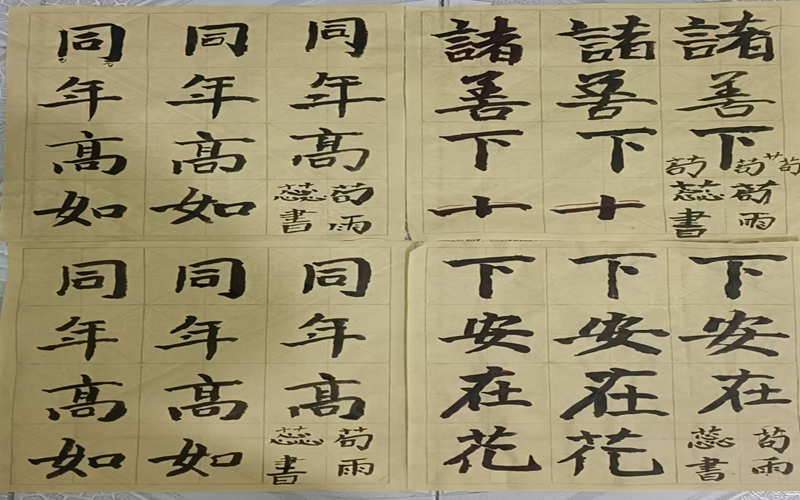 同 同 同
年 年 年
高 高 高
如 如
荀雨
蕊書
諸 諸 諸
善 善 善
下 下 下
荀 荀 荀
十 十
荀雨
蕊書
同 同 同
年 年 年
高 高 高
如 如
荀雨
蕊書
下 下 下
安 安 安
在 在 在
花 花
荀雨
蕊書